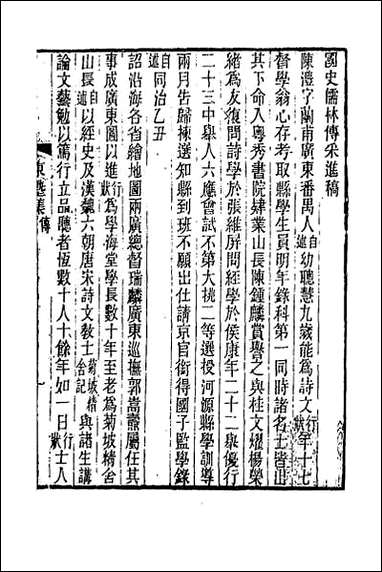 國史儒林傳采進稿
陳澧字蘭甫廣東番禺人自述幼聰慧九歲能為詩文行狀年十七
督學翁心存考取縣學生員明年錄科第一同時諸名士皆出
其下命入粵秀書院肄業山長陳鍾麟賞譽之與桂文燿楊榮
緒為友復問詩學於張維屏問經學於侯康年二十二舉優行
二十三中舉人六應會試不第大挑二等選授河源縣學訓導
兩月告歸揀選知縣到班不願出仕請京官銜得國子監學錄
自述同治乙丑
詔沿海各省繪地圖兩廣總督瑞麟廣東巡撫郭嵩燾屬任其
事成廣東圖以進行狀為學海堂學長數十年至老為菊坡精舍
山長自述以經史及漢魏六朝唐宋詩文教士菊坡精舍記與諸生講
論文藝勉以篤行立品聽者恆數十人十餘年如一日行狀士人
東塾集傳